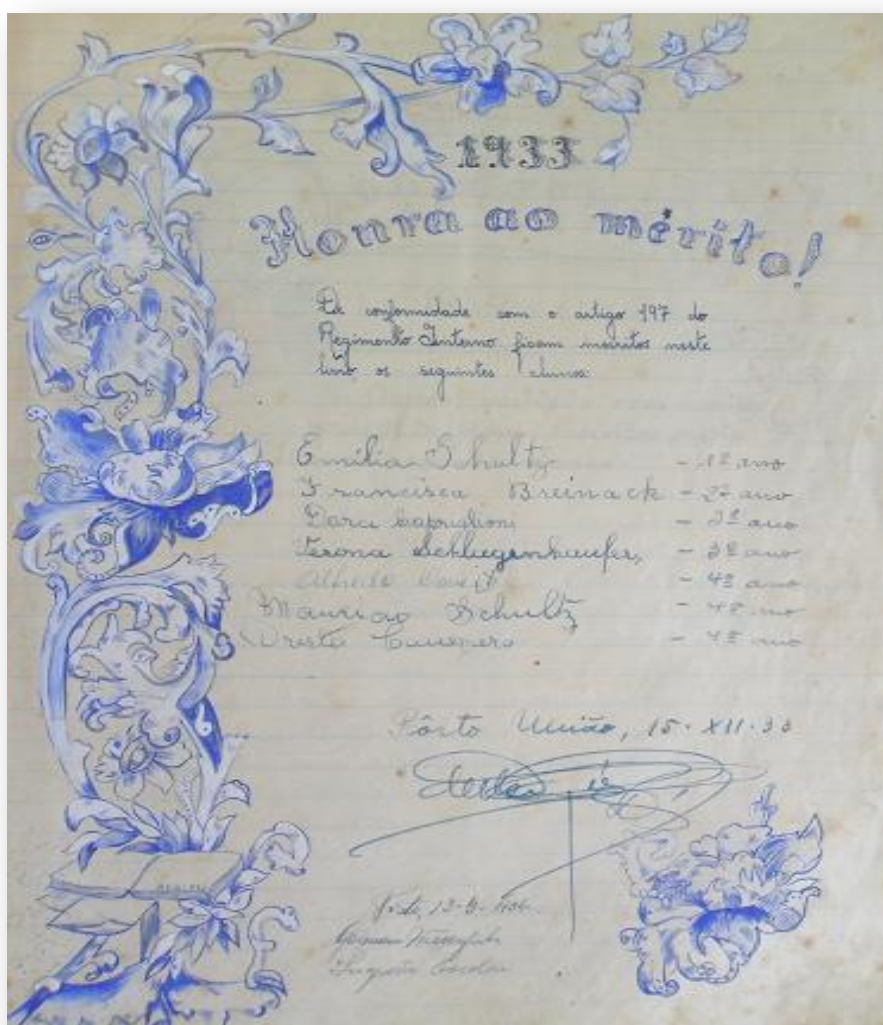 1933
Honra ao mérito!
De conformidade com o artigo 197 do
Regimento Interno ficam inscritos neste
livro os seguintes alunos:
Emilia Schultz - 1º ano
Francisca Breinack - 2º ano
Darci Capriglioni - 2º ano
Verona Schlugenhaufer - 3º ano
Alfredo - 4º ano
Mauricio Schultz - 4º ano
Oreste - 4º ano
Pôrto União, 15-XII-33